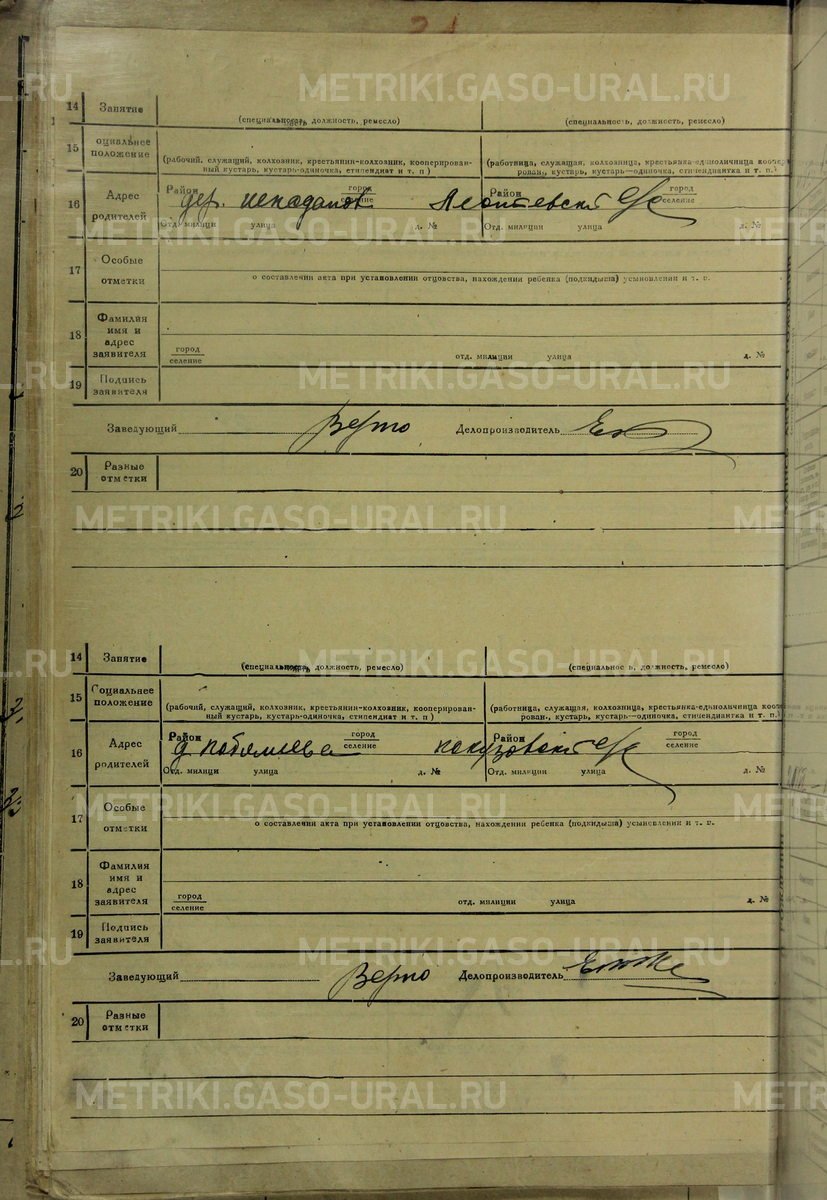 14 Занятие
(специальность, должность, ремесло) (специальность, должность, ремесло)
15 Социальное положение
(рабочий, служащий, колхозник, крестьянин-колхозник, кооперирован- (работница, служащая, колхозница, крестьянка-единоличница коопер
ный кустарь, кустарь-одиночка, стипендиат и т. п) рован., кустарь, кустарь—одиночка, стипендиантка и т. п.)
16 Адрес родителей
Район город селение Район город селение
дер.
Отд. милици улица д. № Отд. милиции улица д. №
17 Особые отметки
о составлении акта при установлении отцовства, нахождении ребенка (подкидыша) усыновлении и т. п.
18 Фамилия имя и адрес заявителя
город селение отд. милиции улица д. №
19 Подпись заявителя
Заведующий Верно Делопроизводитель
20 Разные отметки
14 Занятие
(специальность, должность, ремесло) (специальность, должность, ремесло)
15 Социальное положение
(рабочий, служащий, колхозник, крестьянин-колхозник, кооперирован- (работница, служащая, колхозница, крестьянка-единоличница коопе
ный кустарь, кустарь-одиночка, стипендиат и т. п) рован., кустарь, кустарь—одиночка, стипендиантка и т. п.)
16 Адрес родителей
Район город селение Район город селение
д
Отд. милици улица д. № Отд. милиции улица д. №
17 Особые отметки
о составлении акта при установлении отцовства, нахождении ребенка (подкидыша) усыновлении и т. п.
18 Фамилия имя и адрес заявителя
город селение отд. милиции улица д. №
19 Подпись заявителя
Заведующий Верно Делопроизводитель
20 Разные отметки
METRIKI.GASO-URAL.RU